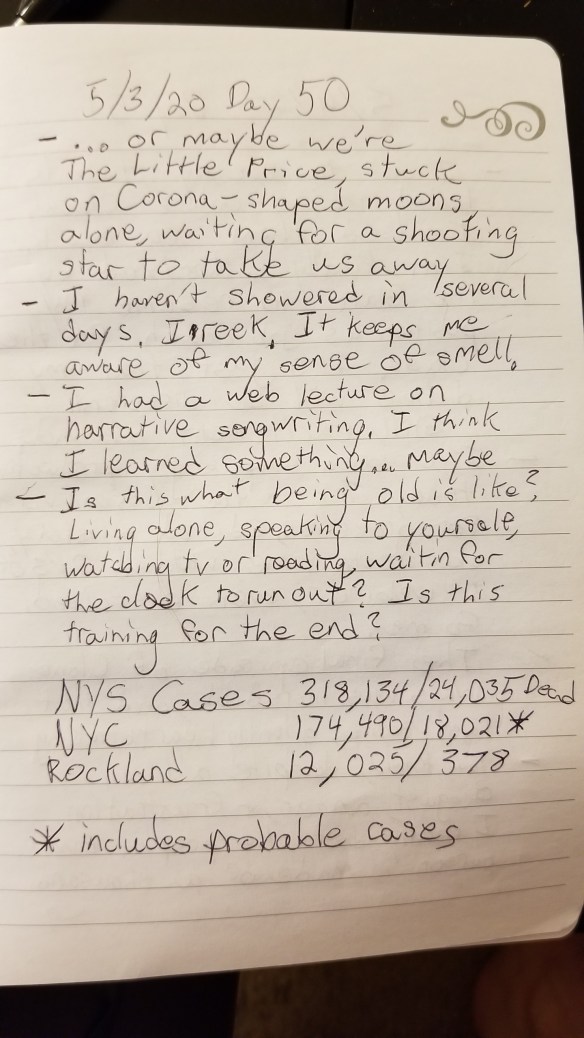 5/3/20 Day 50
- ... or maybe we're
The Little Price, stuck
on Corona-shaped moons,
alone, waiting for a shooting
star to take us away
- I haven't showered in several
days. I reek. It keeps me
aware of my sense of smell.
- I had a web lecture on
narrative songwriting. I think
I learned something... maybe
- Is this what being old is like?
Living alone, speaking to yourself,
watching tv or reading, waitin for
the clock to run out? Is this
training for the end?
NYS Cases 318,134/24,035 Dead
NYC 174,490/18,021*
Rockland 12,025/378
* includes probable cases